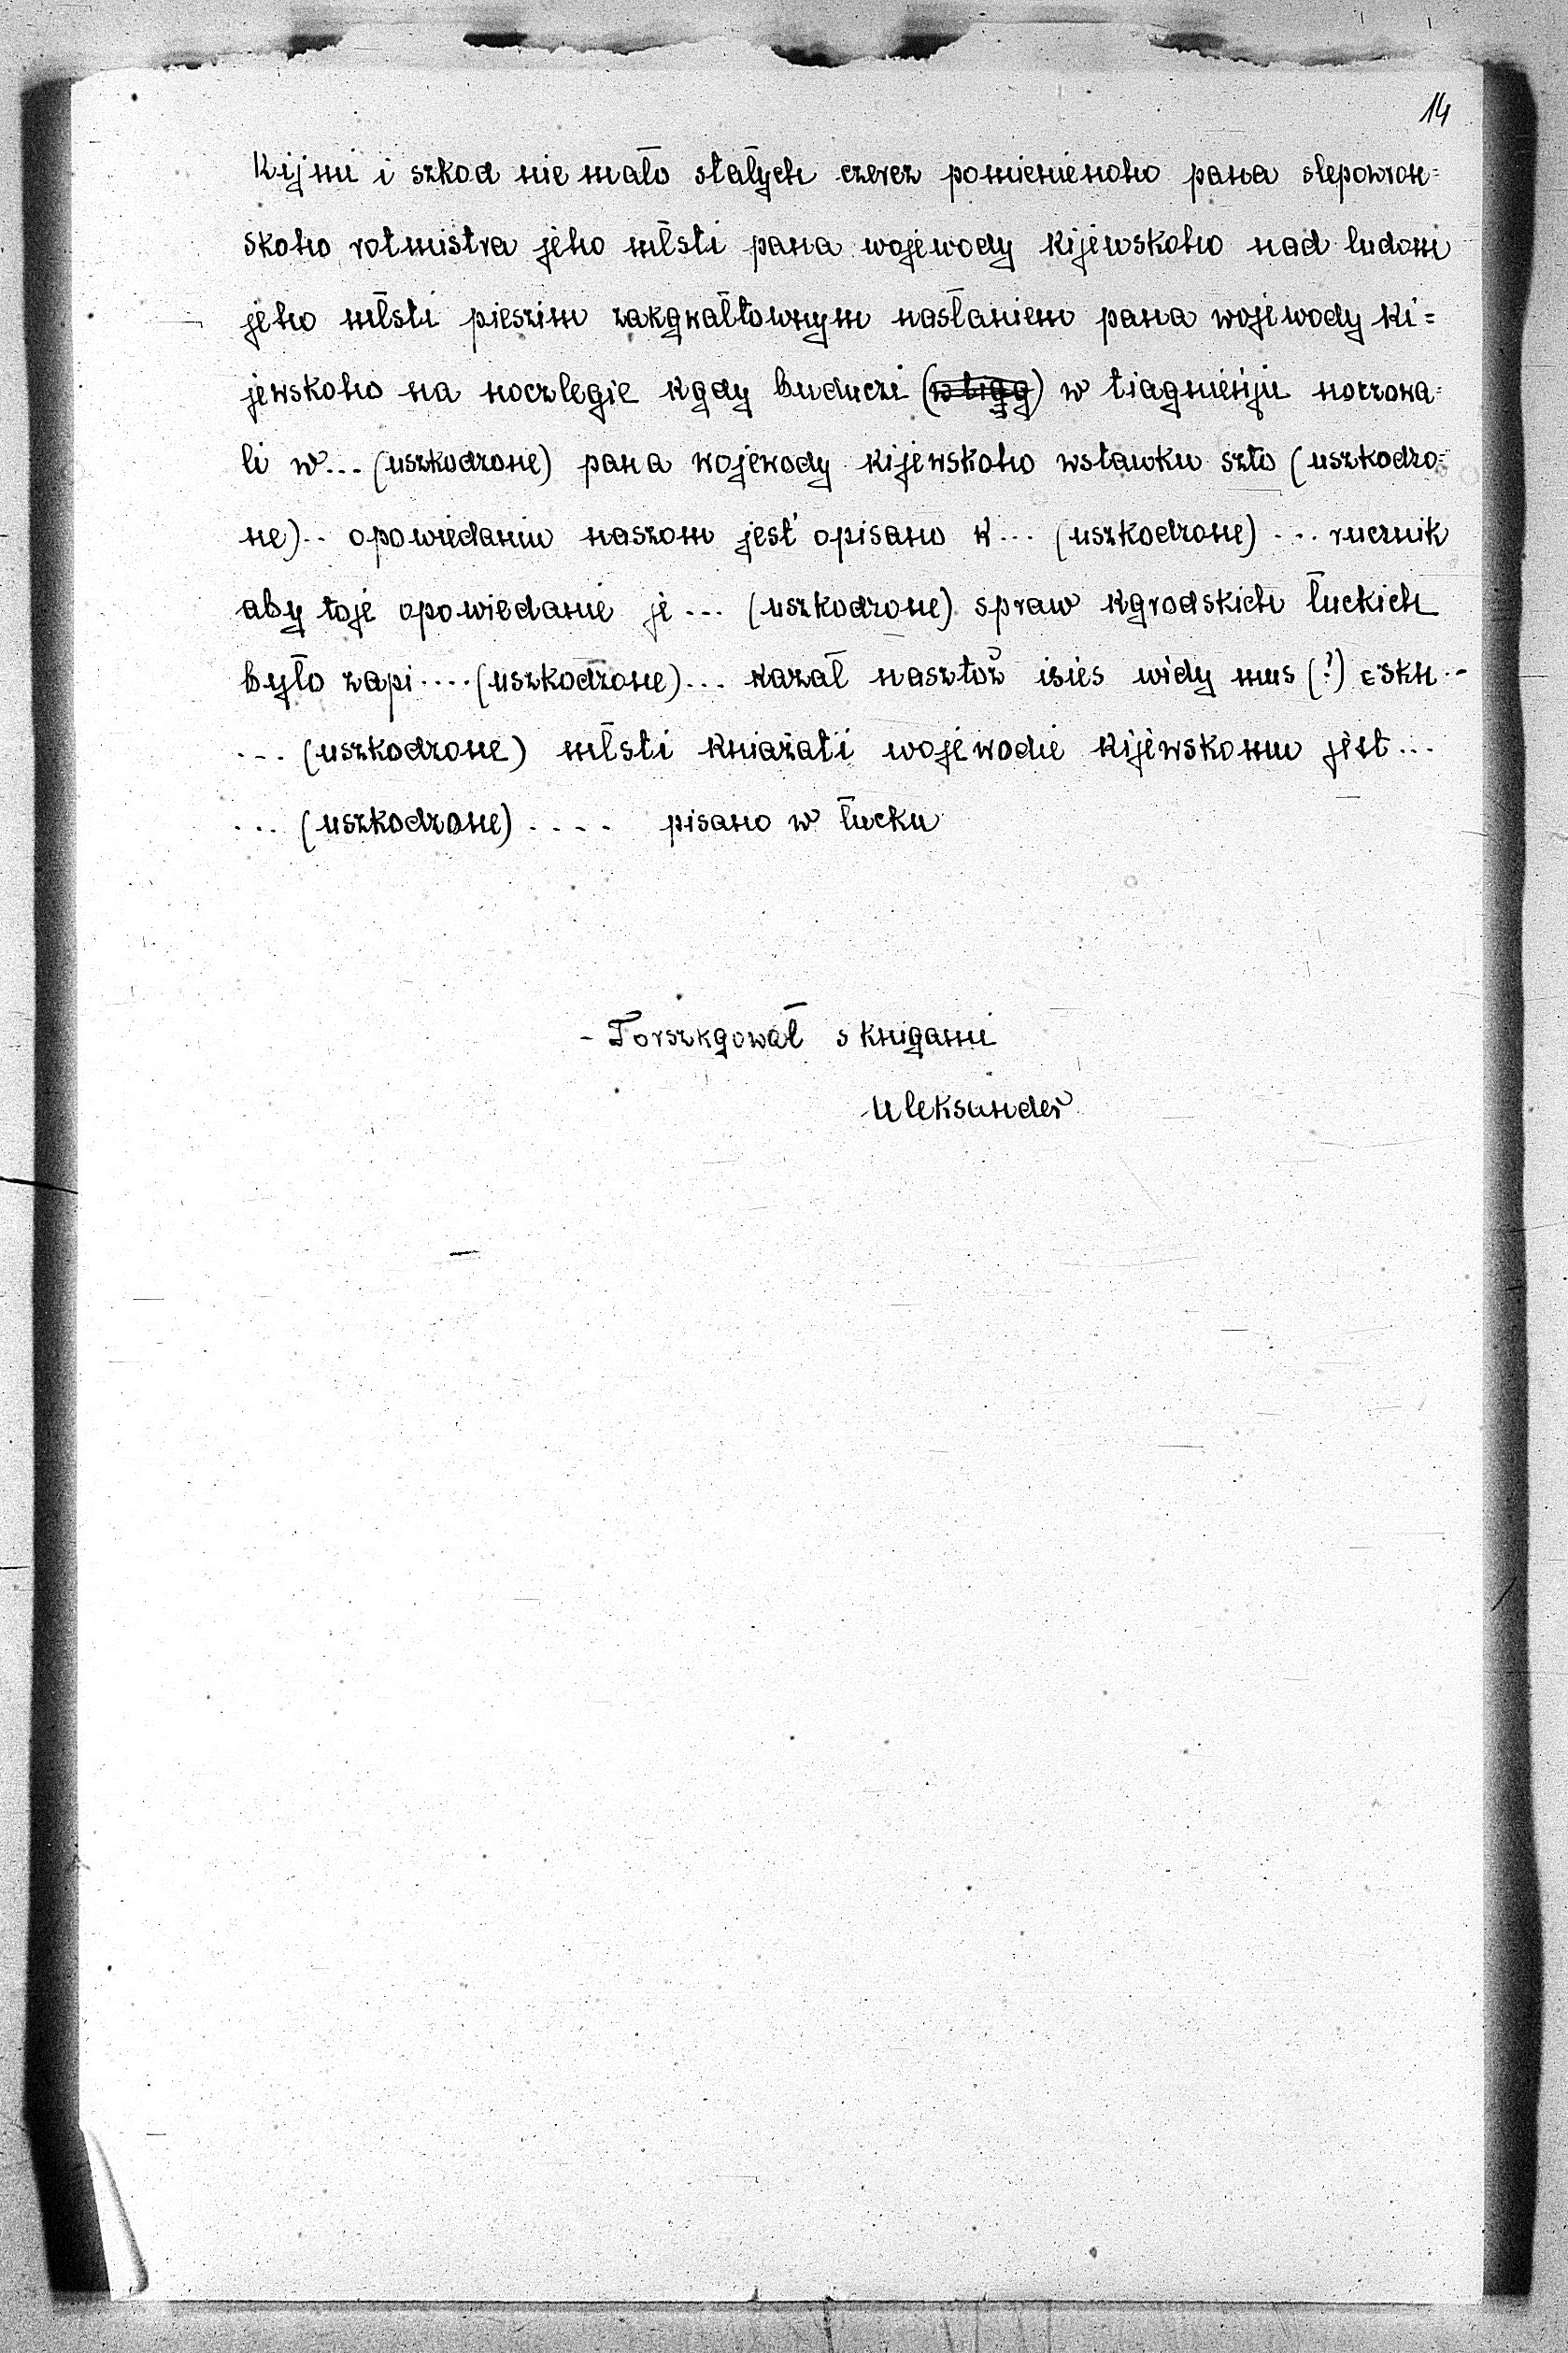 14
Kijmi i szkod nie mało stałych czerez pomienienoho pana slepowron=
skoho rotmistra jeho młsti pana wojewody kijewskoho nad ludom
jeho młsti pieszim zakgwałtownym nasłaniem pana wojewody ki=
jewskoho na noczlegie kgdy buduczi (w tigg) w tiagnieniju noczowa=
li w... (uszkodzone) pana wojewody kijewskoho wstawku szto (uszkodzo=
ne).. opowiedaniu naszom jest' opisano k... (uszkodzone) ... rucznik
aby toje opowiedanie je ... (uszkodzone) spraw kgrodskich łuckich
było zapi .... (uszkodzone) ... kazał nasztoż isies widy mus (?)
... (uszkodzone) młsti kniażati wojewodie kijewskomu jest ...
... (uszkodzone) .... pisano w łucku
- Forszkgował s knigami
Aleksander